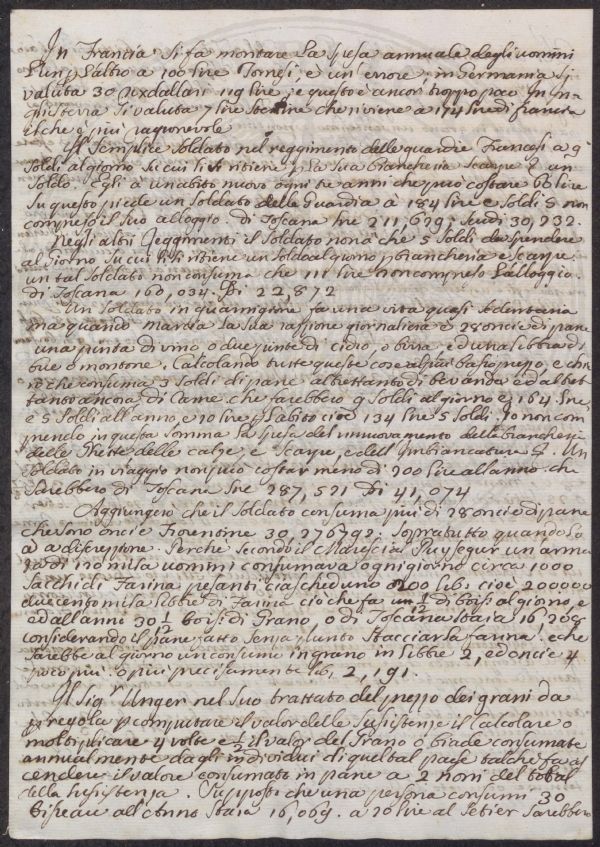 In Francia si fa montare la spesa annuale degli uomini
l'un p l'altro a 100 lire Tornesi, e un errore, in Germania si
valuta 30 rixdallari 119 lire, e questo è ancor troppo poco. In In-
ghilterra si valuta 7 lire che riviene a 174 lire di francia
il che è piu ragionevole
Il Semplice soldato nel reggimento delle guardie Francesi a 9
soldi al giorno su cui li si ritiene p la sua biancheria Scarpe & un
Soldo. Egli a un abito nuovo ogni tre anni che puo costare 60 lire
Su questo piede un Soldato della Guardia à 184 lire e Soldi 5 non
compreso il suo alloggio. di Toscana lire 211,679; Scudi 30,232.
Negli altri Reggimenti il Soldato non à che 5 Soldi da spendere
al Giorno su cui li si ritiene un Soldo al giorno p biancheria e Scarpe
un tal Soldato non consuma che 111 lire non compreso l'alloggio.
di Toscana 160,034. 22,872
Un Soldato in guarnigione fa una vita quasi sedentaria
ma quando marcia la sua razzione giornaliera è 28 oncie di pane
una pinta di vino o due pinte di cidro, o birra ed una libbra di
bue o montone. Calcolando tutte queste cose al piu basso prezzo, e
che consuma 3 Soldi di pane altrettanto di bevanda ed altret-
tanto ancora di Carne che farebbero 9 Soldi al giorno e 164 lire,
e 5 Soldi all'anno e 20 lire p l'abito cioè 184 lire 5 Soldi. Io non com-
prendo in questa somma la spesa del rinnovamento della biancheria
delle delle calze, e Scarpe, e dell'Imbiancatura &. Un
Soldato in viaggio non puo costar meno di 200 lire all'anno che
Sarebbero di Toscana lire 287,521 41,074
Aggiungerò che il Soldato consuma piu di 28 oncie di pane
che sono oncie Fiorentine 30,276792; sopratutto quando lo
à a discrezione. Perche secondo il Marescial Puysegur un arma-
ta di 120 mila uomini consumava ogni giorno circa 1000
Sacchi di Farina pesanti ciascheduno 200 lib. cioè 200000
duecento mila libbre di Farina ciò che fa 1/12 di boiss: al giorno, e
ed all'anno 30 1/2 boiss: di Grano, o di Toscana Staia 16,208
considerando il pane fatto senza punto Stacciar la farina. che
sarebbe al giorno un consumo in grano in libbre 2, ed oncie 4
poco piu o piu precisamente lib, 2,191.
Il Sig.r Unger nel suo trattato del prezzo dei grani da
p regola p computare il valor delle sussistenze il Calcolare o
moltiplicare 4 volte e 1/2 il valor del Grano o biade consumate
annualmente dagli individui di quel tal paese talche fa as-
cendere il valore consumato in pane a 2 noni del total
della sussistenza. Supposto che una persona consumi 30
Bisseau all'Anno Staia 16,069. a 20 lire al Setier Sarebbero